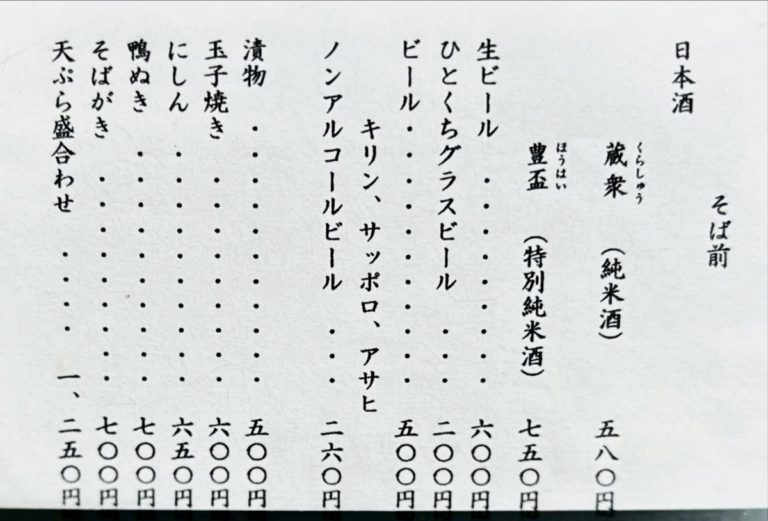 そば前
日本酒
蔵衆 (純米酒) 五八〇円
くらしゅう
豊盃 (特別純米酒) 七五〇円
ほうはい
生ビール ・・・・・・・・・・ 六〇〇円
ひとくちグラスビール ・・・ 二〇〇円
ビール・・・・・・・・・・・・ 五〇〇円
キリン、サッポロ、アサヒ
ノンアルコールビール ・・・ 二六〇円
漬物 ・・・・・・・・・・・・ 五〇〇円
玉子焼き ・・・・・・・・・・ 六〇〇円
にしん ・・・・・・・・・・・ 六五〇円
鴨ぬき ・・・・・・・・・・・ 七〇〇円
そばがき ・・・・・・・・・・ 七〇〇円
天ぷら盛合わせ ・・・・ 一、二五〇円